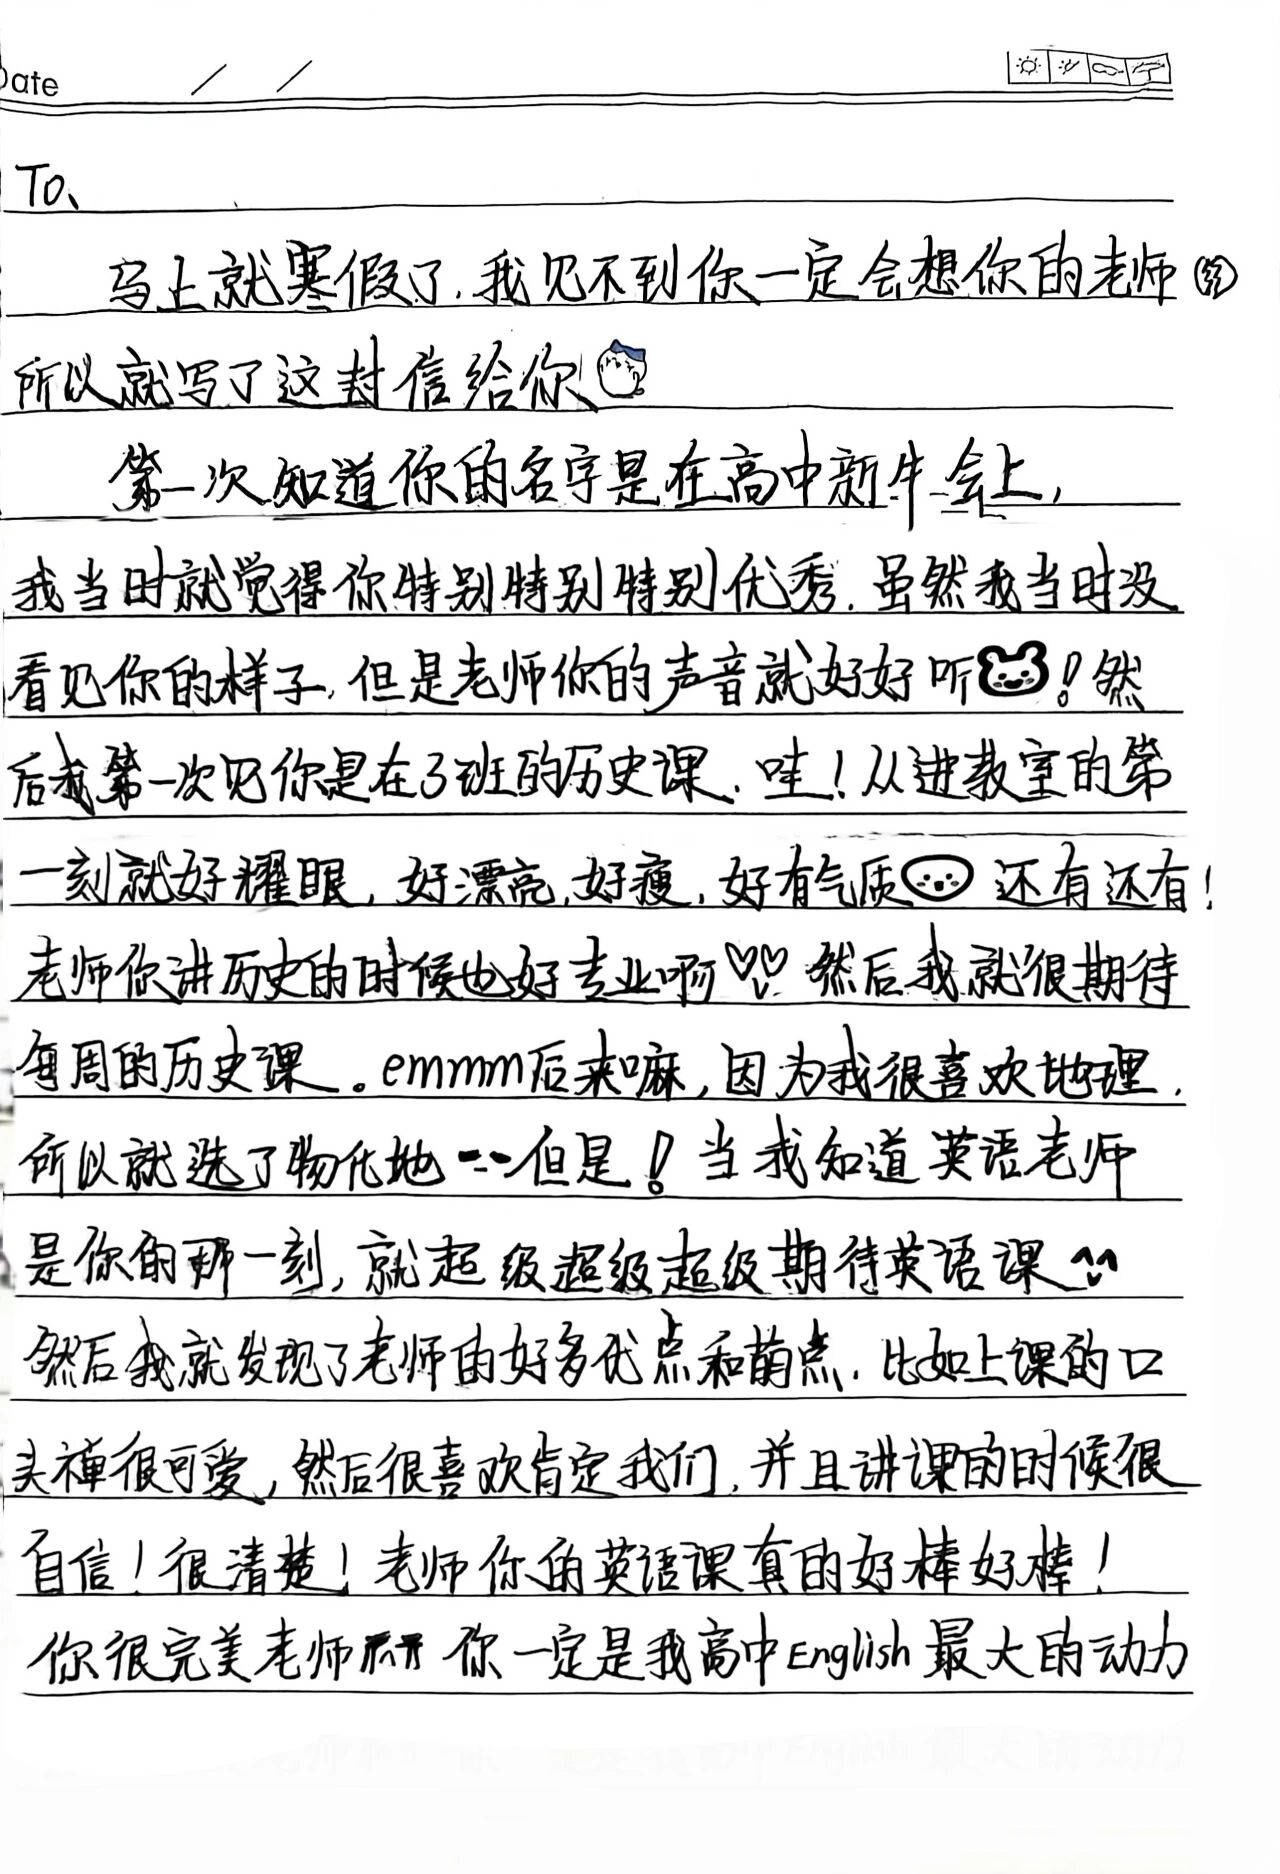 Date / /
To、
马上就寒假了,我见不到你一定会想你的老师
所以就写了这封信给你
第一次知道你的名字是在高中新生会上,
我当时就觉得你特别特别特别优秀.虽然我当时没
看见你的样子,但是老师你的声音就好好听!然
后我第一次见你是在3班的历史课.哇!从进教室的第
一刻就好耀眼,好漂亮,好瘦,好有气质 还有还有!
老师你讲历史的时候也好专业啊♡♡ 然后我就很期待
每周的历史课。emmm后来嘛,因为我很喜欢地理.
所以就选了物化地--但是!当我知道英语老师
是你的那一刻,就超级超级超级期待英语课^^
然后我就发现了老师的好多优点和萌点.比如上课的口
头禅很可爱,然后很喜欢肯定我们,并且讲课的时候很
自信!很清楚!老师你的英语课真的好棒好棒!
你很完美老师 你一定是我高中English最大的动力